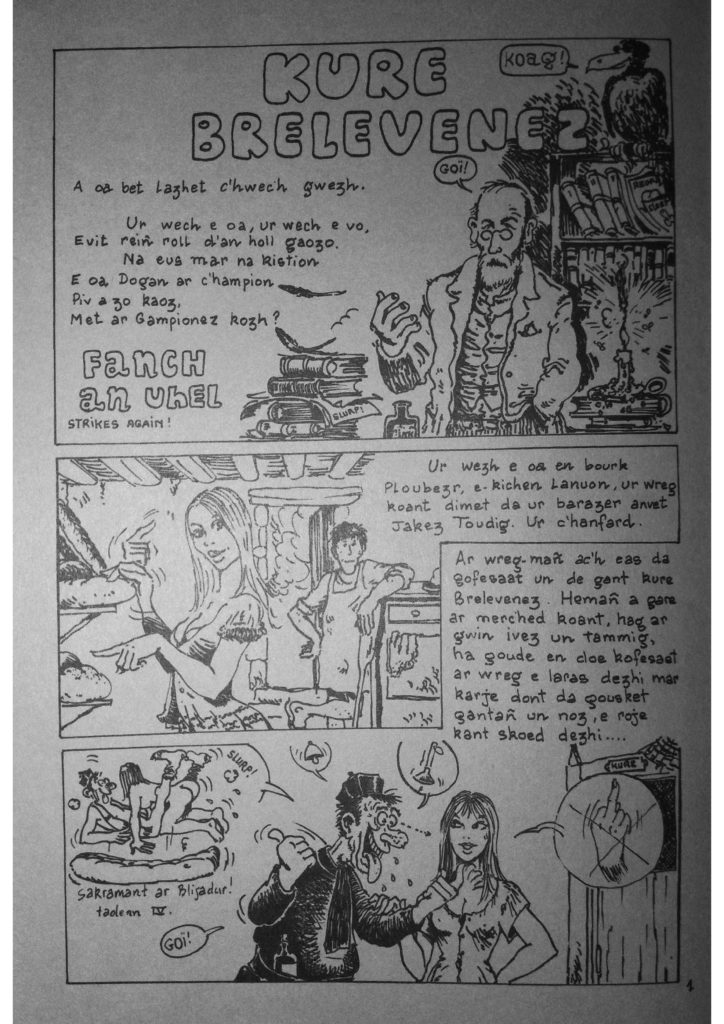 KURE
BRELEVENEZ
KOAG!
GOÏ!
A oa bet lazhet c'hwec'h gwezh.
Ur wech e oa, ur wech e vo,
Evit reiñ roll d'an holl gaozo.
Na eus mar na kistion
E oa Dogan ar c'hampion
Piv a zo kaoz,
Met ar Gampionez kozh?
FANCH
AN UHEL
STRIKES AGAIN!
SLURP!
Ur wezh e oa en bourk
Ploubezr, e-kichen Lanuon, ur wreg
koant dimet da ur barazer anvet
Jakez Toudig. Ur c'hanfard.
Ar wreg-mañ ac'h eas da
gofesaat un de gant kure
Brelevenez. Hemañ a gare
ar merched koant, hag ar
gwin ivez un tammig,
ha goude en doe kofesaet
ar wreg e laras dezhi mar
karje dont da gousket
gantañ un noz, e roje
kant skoed dezhi....
SLURP!
KURE
Sakramant ar Blijadur!
taolenn IV.
GOÏ!
1